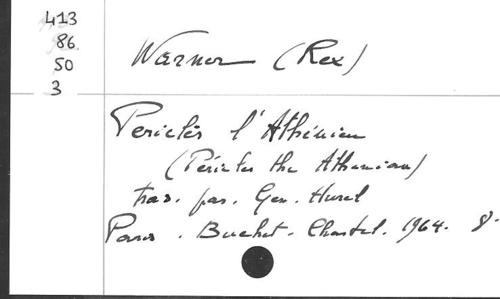 413
86
50
3
Warner (Rex)
Périclès l'Athénien
(Périclès the Athenian)
trad. par. Gen. Hurel
Paris. Buchet. Chastel. 1964. 8°.